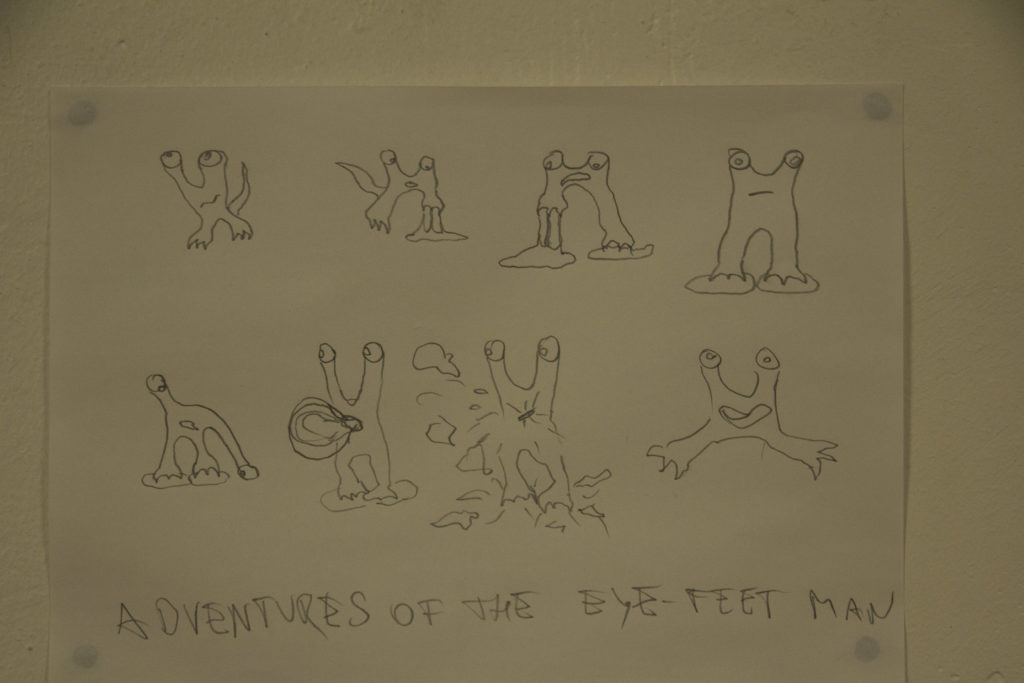 ADVENTURES OF THE EYE-FEET MAN